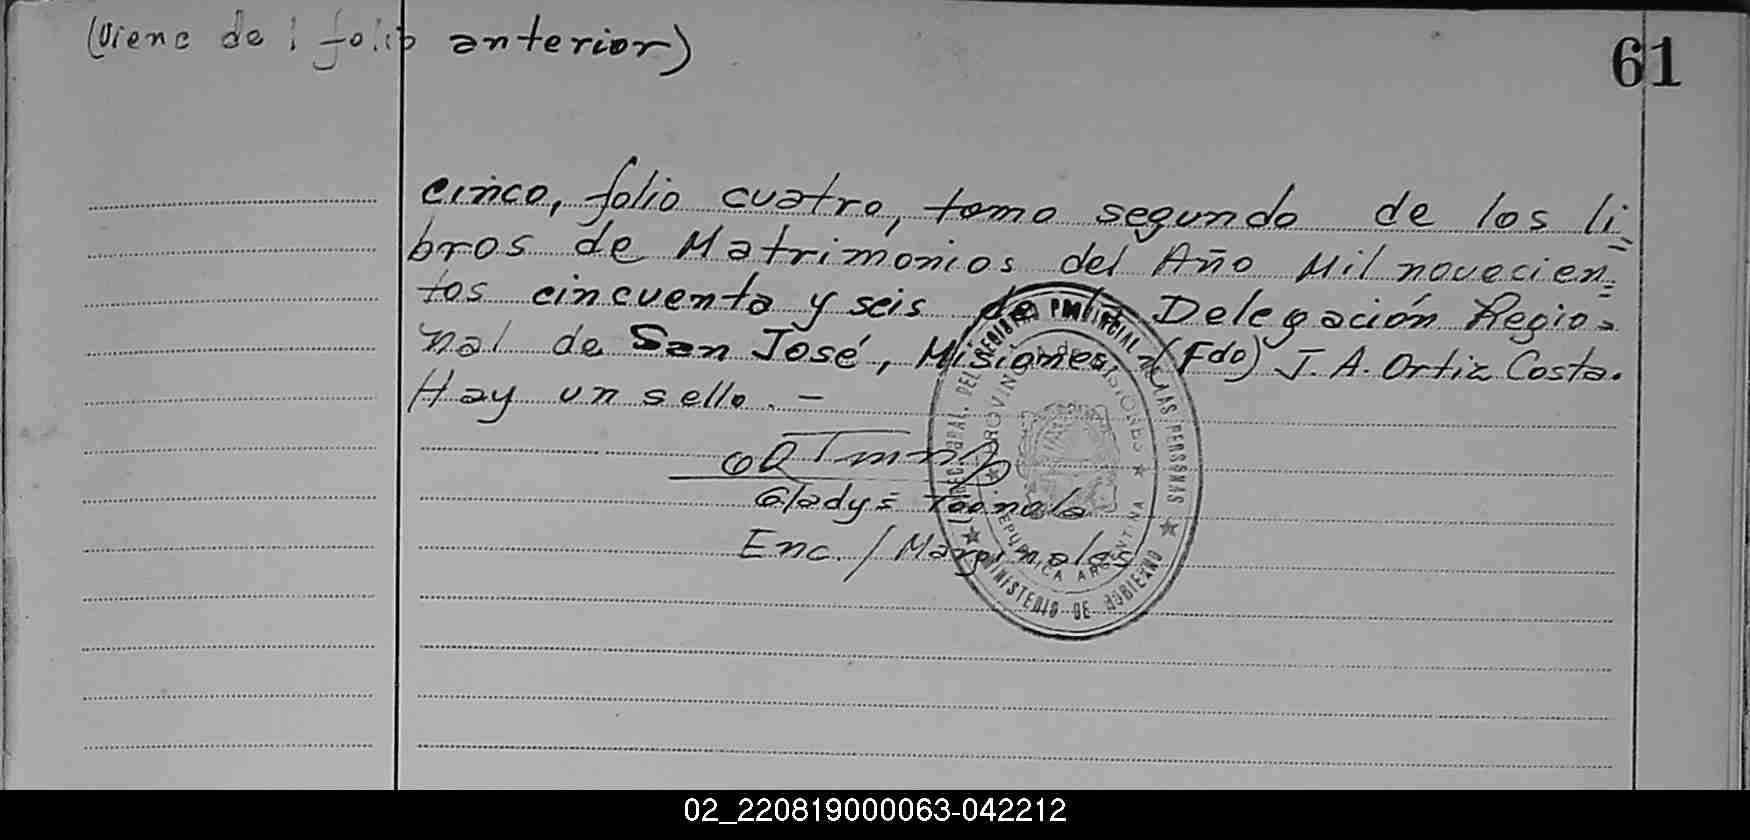 (Viene del folio anterior)
61
cinco, folio cuatro, tomo segundo de los li=
bros de Matrimonios del Año Mil novecien=
tos cincuenta y seis de la Delegación Regio=
nal de San José, Misiones. (Fdo) J. A. Ortiz Costa.
Hay un sello. -
Gladys
Enc. / Marginales
PROVINCIAL DE LAS PERSONAS
MINISTERIO DE GOBIERNO
REPUBLICA ARGENTINA
02_220819000063-042212